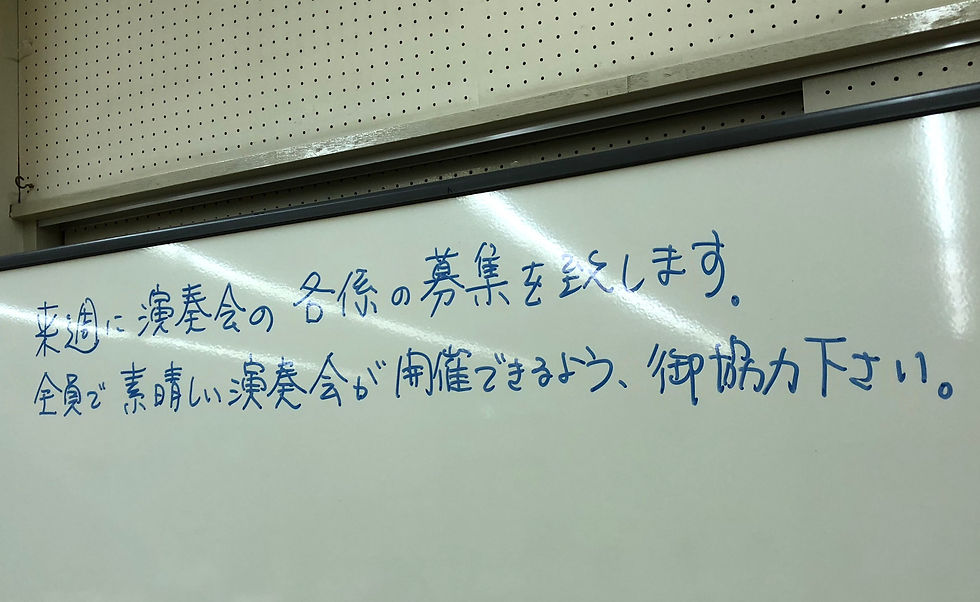 来週に演奏会の各係の募集を致します。
全員で素晴しい演奏会が開催できるよう、御協力下さい。